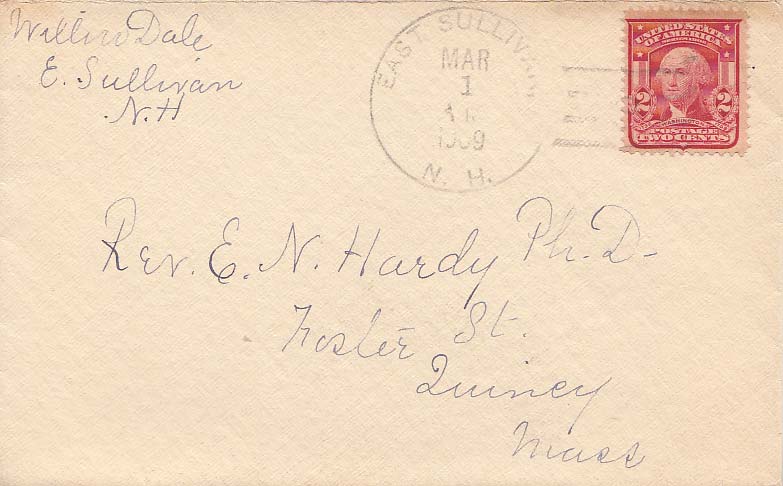 Willis Dale
E. Sullivan
N.H
EAST SULLIVAN
MAR
1
1909
N. H.
UNITED STATES
OF AMERICA
SERIES 1902
2 2
WASHINGTON
POSTAGE
TWO CENTS
Rev. E. N. Hardy Ph.D-
Foster St.
Quincy
Mass